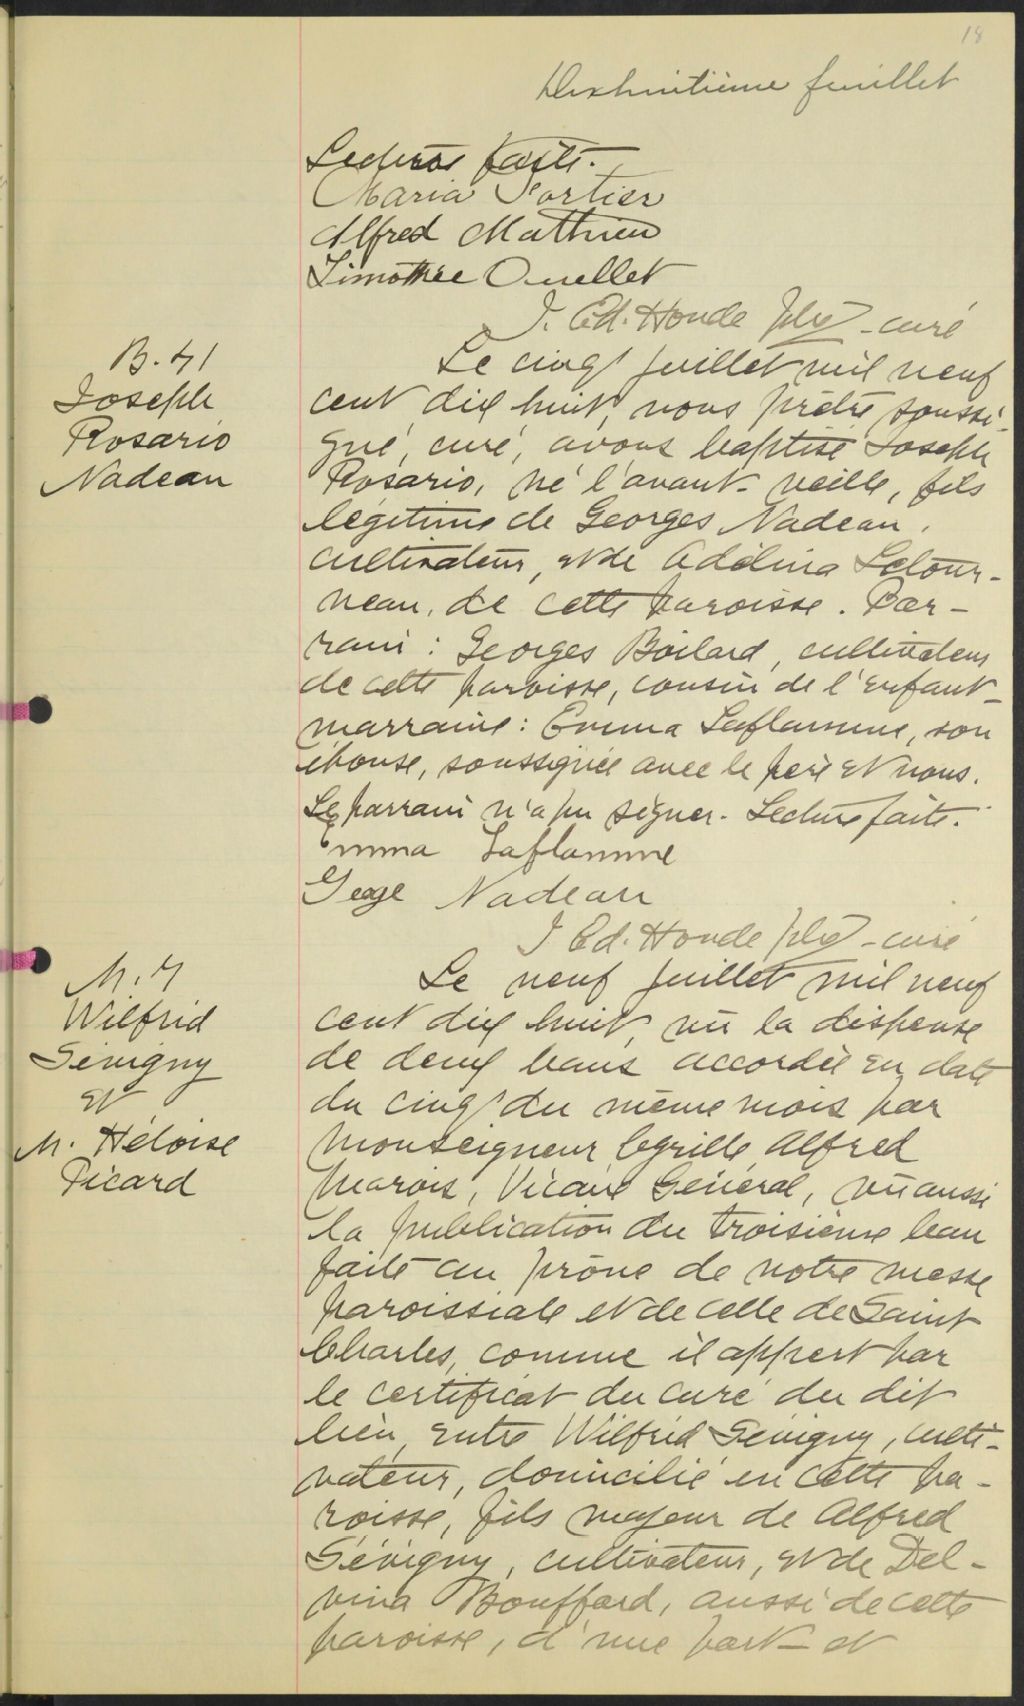 18
Dixhuitième feuillet
Lecture faite.
Maria Fortier
Alfred Mathieu
Timothée Ouellet
J. Ed. Houde ptre - curé
B. 41
Joseph
Rosario
Nadeau
Le cinq juillet mil neuf
cent dix huit, nous prêtre soussi-
gné, curé, avons baptisé Joseph
Rosario, né l'avant-veille, fils
légitime de Georges Nadeau,
cultivateur, et de Adélina Létour-
neau, de cette paroisse. Par-
rain : Georges Boilard, cultivateur
de cette paroisse, cousin de l'enfant -
marraine : Emma Laflamme, son
épouse, soussignée avec le père et nous.
Le parrain n'a pu signer. Lecture faite.
Emma Laflamme
George Nadeau
J Ed. Houde ptre - curé
M. 7
Wilfrid
Sévigny
et
M. Héloïse
Picard
Le neuf juillet mil neuf
cent dix huit, vu la dispense
de deux bans accordée en date
du cinq du même mois par
Monseigneur Cyrille Alfred
Marois, Vicaire Général, vu aussi
la publication du troisième ban
faite au prône de notre messe
paroissiale et de celle de Saint
Charles, comme il appert par
le certificat du curé du dit
lieu, entre Wilfrid Sévigny, culti-
vateur, domicilié en cette pa-
roisse, fils majeur de Alfred
Sévigny, cultivateur, et de Del-
vina Bouffard, aussi de cette
paroisse, d'une part - et